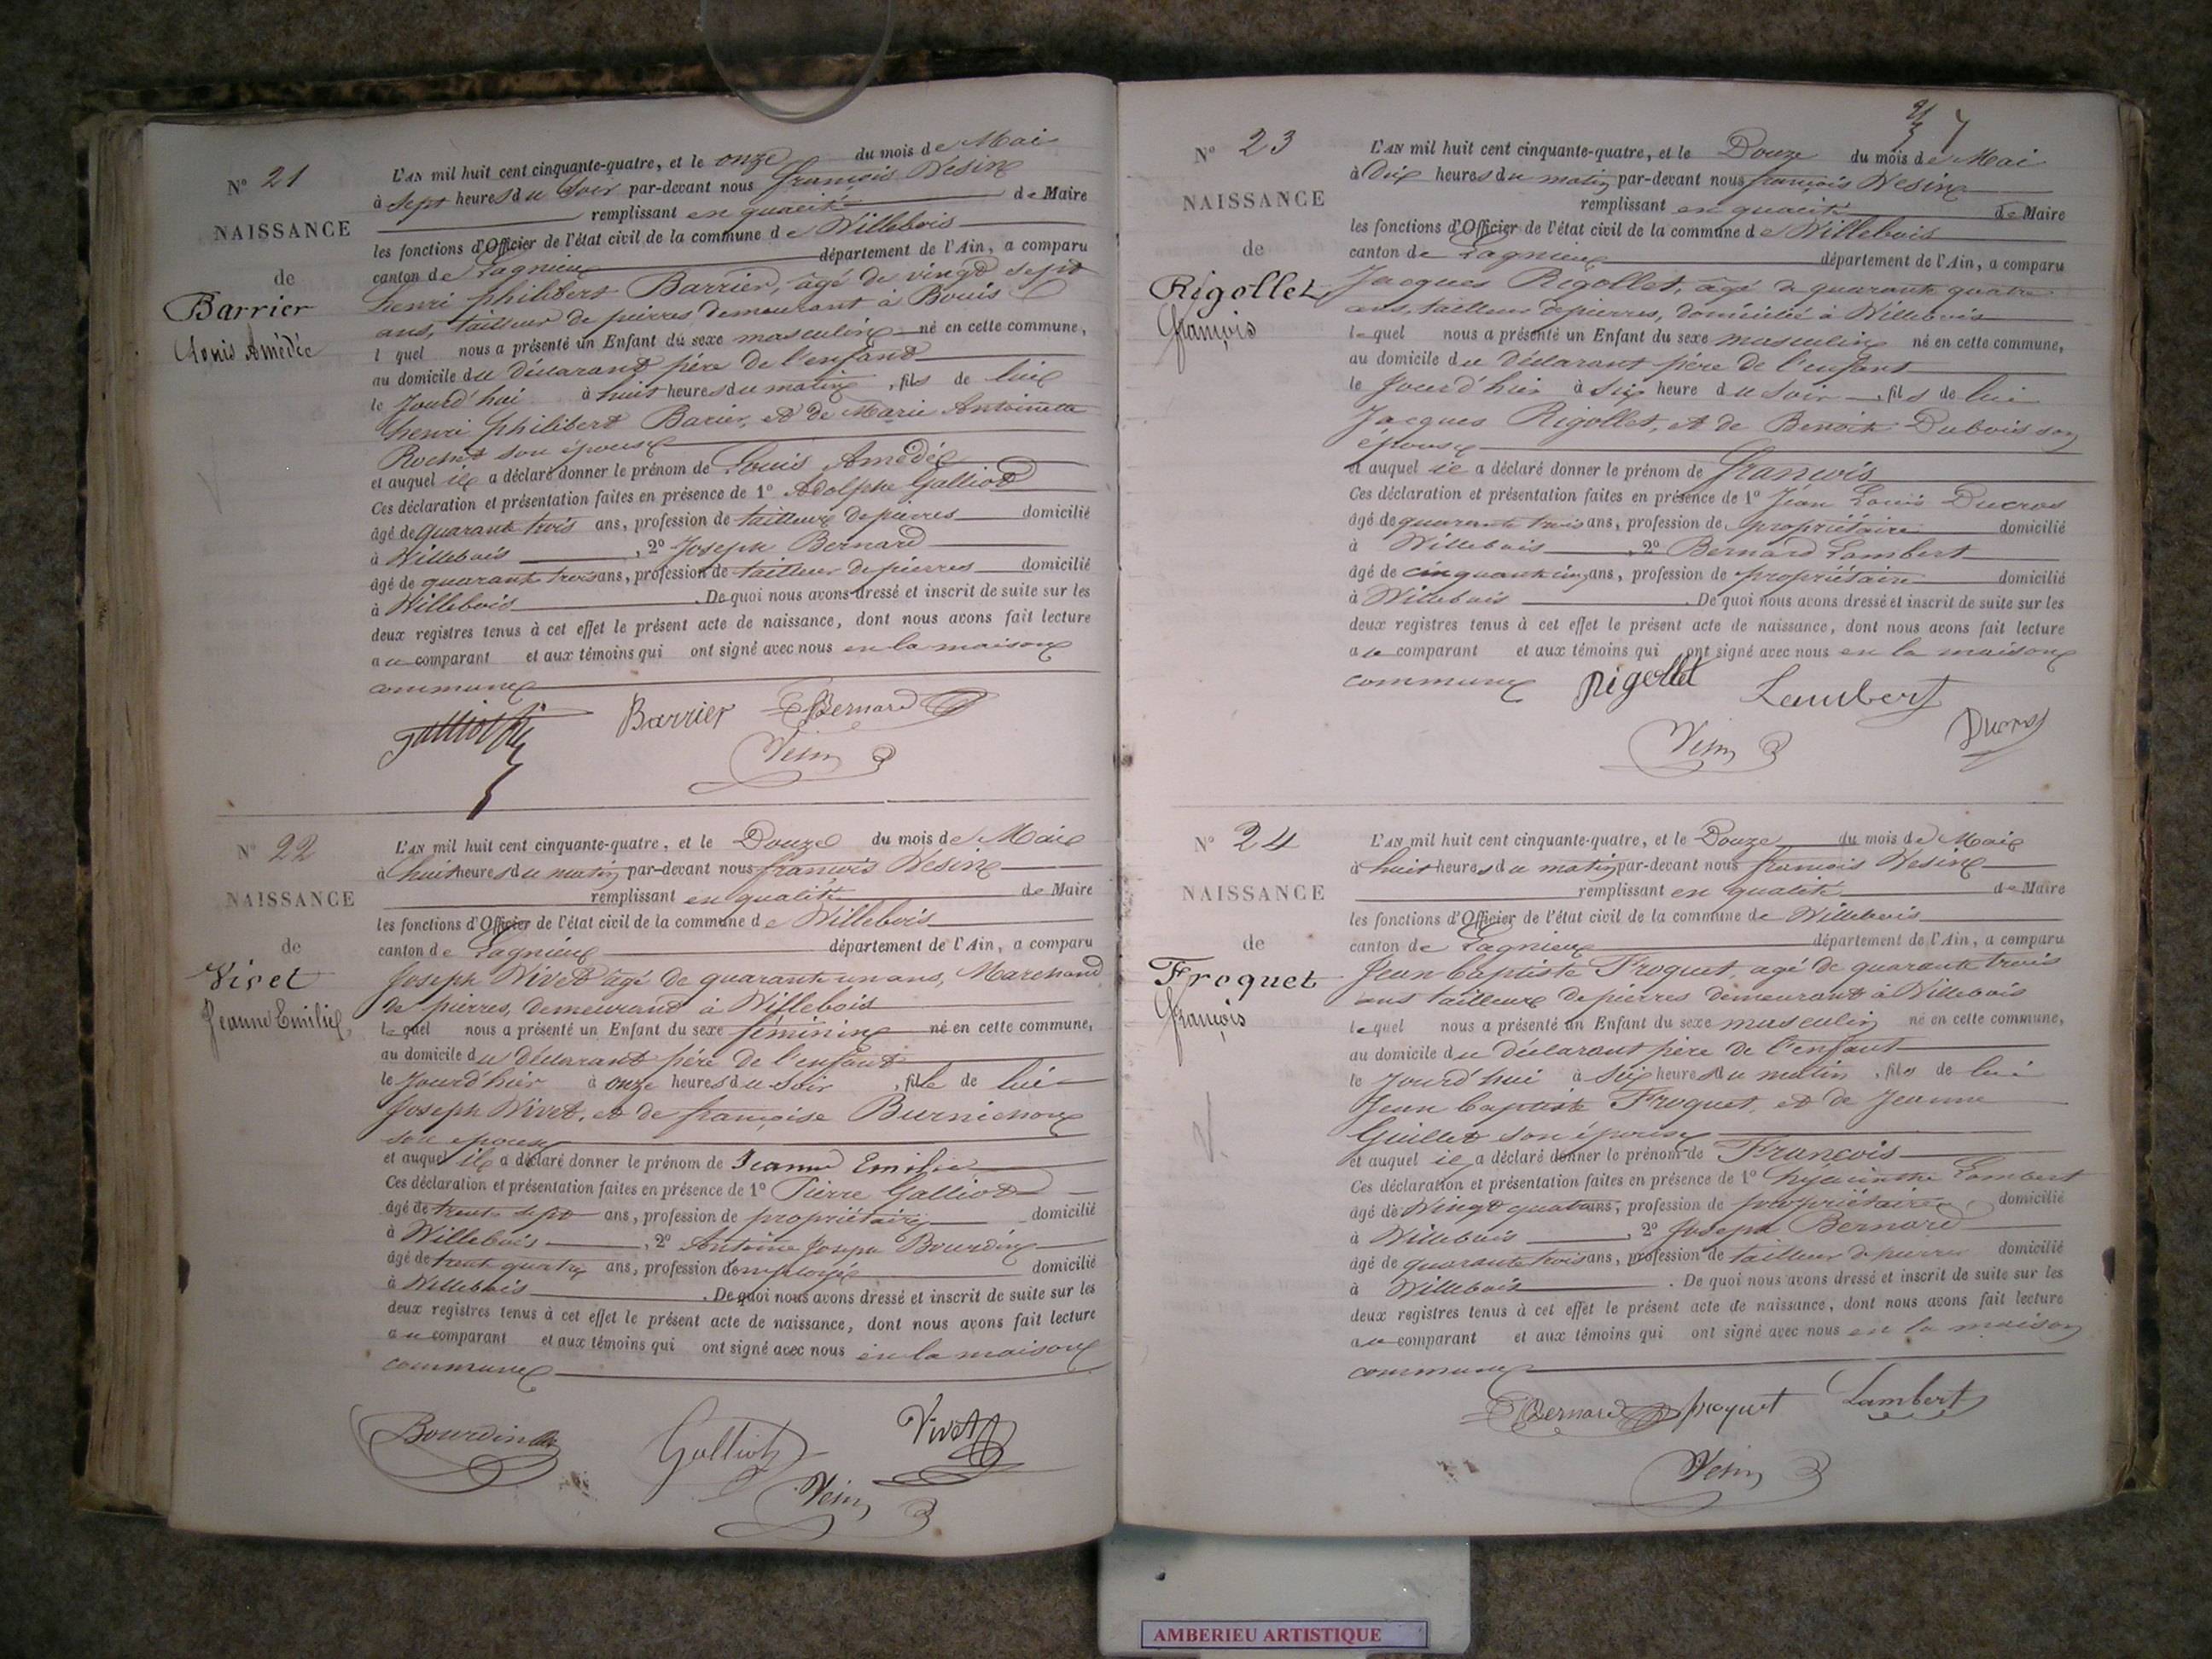 N° 21
NAISSANCE
de
Barrier
Louis Amédée
L'AN mil huit cent cinquante-quatre, et le onze du mois de Mai
à sept heures du soir par-devant nous françois Vesin
remplissant en qualité de Maire
les fonctions d'Officier de l'état civil de la commune de Villebois
canton de Lagnieu département de l'Ain, a comparu
henri philibert Barrier, âgé de vingt sept
ans, tailleur de pierres demeurant à Bouis
l quel nous a présenté un Enfant du sexe masculin né en cette commune,
au domicile du déclarant père de l'enfant
le Jourd'hui à huit heures du matin, fils de lui
henri philibert Barier, et de Marie Antoinette
Rochet son épouse
et auquel il a déclaré donner le prénom de Louis Amédée
Ces déclaration et présentation faites en présence de 1° Adolphe Galliot
âgé de quarante trois ans, profession de tailleur de pierres domicilié
à Villebois, 2° Joseph Bernard
âgé de quarante trois ans, profession de tailleur de pierres domicilié
à Villebois. De quoi nous avons dressé et inscrit de suite sur les
deux registres tenus à cet effet le présent acte de naissance, dont nous avons fait lecture
au comparant et aux témoins qui ont signé avec nous en la maison
commune
Barrier Bernard
Vesin
N° 22
NAISSANCE
de
Vivet
Jeanne Emilie,
L'AN mil huit cent cinquante-quatre, et le Douze du mois de Mai
à huit heures du matin par-devant nous françois Vesin
remplissant en qualité de Maire
les fonctions d'Officier de l'état civil de la commune de Villebois
canton de Lagnieu département de l'Ain, a comparu
Joseph Vivet âgé de quarante un ans, Marchand
de pierres, demeurant à Villebois
lequel nous a présenté un Enfant du sexe féminin né en cette commune,
au domicile du déclarant père de l'enfant
le Jourd'hier à onze heures du soir, file de lui
Joseph Vivet, et de françoise Burnichon
son épouse
et auquel il a déclaré donner le prénom de Jeanne Emilie
Ces déclaration et présentation faites en présence de 1° Pierre Galliot
âgé de trente sept ans, profession de propriétaire domicilié
à Villebois, 2° Antoine Joseph Bourdin
âgé de trente quatre ans, profession d'employé domicilié
à Villebois. De quoi nous avons dressé et inscrit de suite sur les
deux registres tenus à cet effet le présent acte de naissance, dont nous avons fait lecture
au comparant et aux témoins qui ont signé avec nous en la maison
commune
Bourdin Galliot Vivet
Vesin
7
N° 23
NAISSANCE
de
Rigollet
françois
L'AN mil huit cent cinquante-quatre, et le Douze du mois de Mai
à Dix heures du matin par-devant nous françois Vesin
remplissant en qualité de Maire
les fonctions d'Officier de l'état civil de la commune de Villebois
canton de Lagnieu département de l'Ain, a comparu
Jacques Rigollet, âgé de quarante quatre
ans, tailleur de pierres, domicilié à Villebois
lequel nous a présenté un Enfant du sexe masculin né en cette commune,
au domicile du déclarant père de l'enfant
le Jourd'hier à six heure du soir, fils de lui
Jacques Rigollet, et de Benoite Dubois son
épouse
et auquel il a déclaré donner le prénom de françois
Ces déclaration et présentation faites en présence de 1° Jean Louis Ducros
âgé de quarante trois ans, profession de propriétaire domicilié
à Villebois, 2° Bernard Lambert
âgé de cinquante cinq ans, profession de propriétaire domicilié
à Villebois. De quoi nous avons dressé et inscrit de suite sur les
deux registres tenus à cet effet le présent acte de naissance, dont nous avons fait lecture
au comparant et aux témoins qui ont signé avec nous en la maison
commune Rigollet Lambert
Vesin Ducros
N° 24
NAISSANCE
de
Froquet
françois
L'AN mil huit cent cinquante-quatre, et le Douze du mois de Mai
à huit heures du matin par-devant nous françois Vesin
remplissant en qualité de Maire
les fonctions d'Officier de l'état civil de la commune de Villebois
canton de Lagnieu département de l'Ain, a comparu
Jean baptiste Froquet, agé de quarante trois
ans tailleur de pierres demeurant à Villebois
lequel nous a présenté un Enfant du sexe masculin né en cette commune,
au domicile du déclarant père de l'enfant
le Jourd'hui à six heures du matin, fils de lui
Jean baptiste Froquet, et de Jeanne
Guillet son épouse
et auquel il a déclaré donner le prénom de François
Ces déclaration et présentation faites en présence de 1° hyacinthe Lambert
âgé de Vingt quatre ans, profession de propriétaire, domicilié
à Villebois, 2° Joseph Bernard
âgé de quarante trois ans, profession de tailleur de pierres domicilié
à Villebois. De quoi nous avons dressé et inscrit de suite sur les
deux registres tenus à cet effet le présent acte de naissance, dont nous avons fait lecture
au comparant et aux témoins qui ont signé avec nous en la maison
commune
Bernard froquet Lambert
Vesin
AMBERIEU ARTISTIQUE